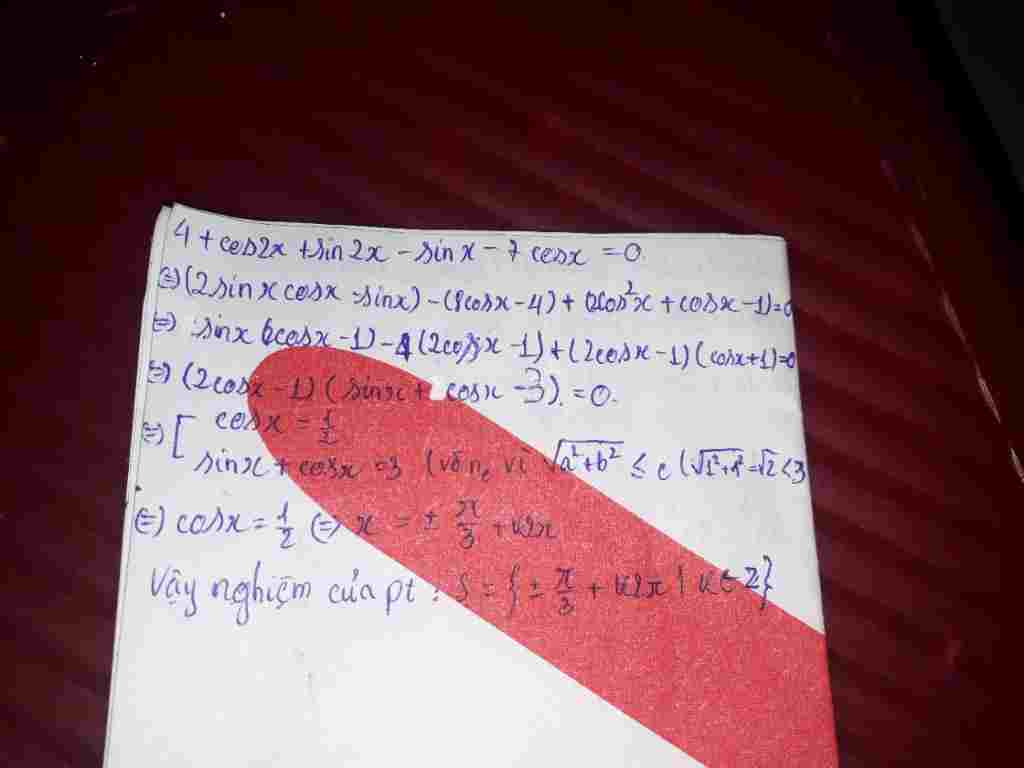 4 + cos2x + sin2x - sinx - 7cosx = 0
⇔ (2sinxcosx - sinx) - (8cosx - 4) + (2cos²x + cosx - 1) = 0
⇔ sinx(2cosx - 1) - 4(2cosx - 1) + (2cosx - 1)(cosx + 1) = 0
⇔ (2cosx - 1)(sinx + cosx - 3) = 0.
⇔ [ cosx = 1/2
sinx + cosx = 3 (vô n₀ vì √(a²+b²) ≤ c (√(1²+1²) = √2 < 3
⇔ cosx = 1/2 ⇔ x = ± π/3 + k2π
Vậy nghiệm của pt : S = {± π/3 + k2π | k ∈ Z}